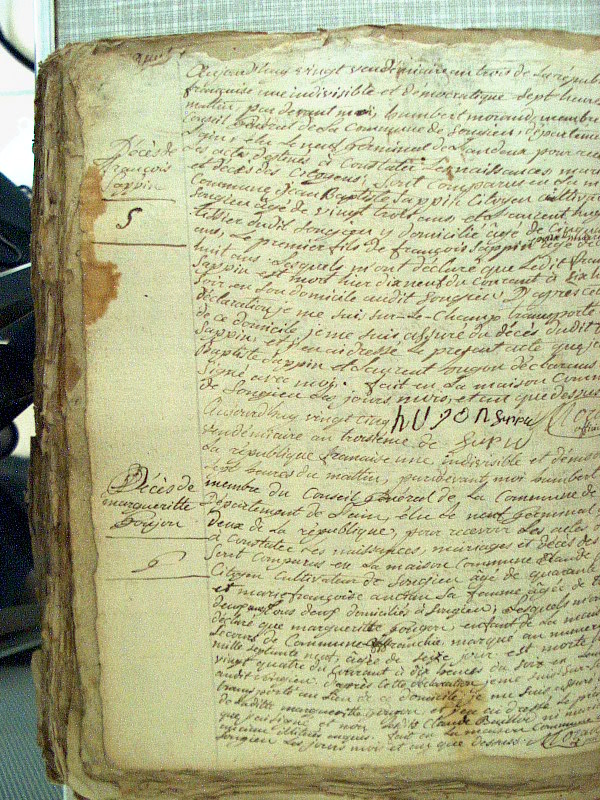 Aujourd'huy vingt vendémiaire an trois de la républ
française une indivisible et démocratique sept heures
matin, par devant moi, humbert morand, membre
Conseil Général de la Commune de Songieu, départemen
Lain, élu le neuf Germinal de l'an deux, pour rece
Les actes destinés à Constater Les naissances, maria
et décès des Citoyens; Sont comparus en la m
Commune Jean Baptiste Sappin Citoyen Cultiva
Songieu agé de vingt trois ans, et Laurent hug
dudit Songieu y domicilié agé de
ans, Le premier fils de françois Sappin agé de
huit ans. Lesquels m'ont déclaré que Ledit fran
Sappin est mort hier dixneuf du Courant à six h
soir, en son domicile audit Songieu. D'après cette
déclaration, je me suis sur-le-Champ transporté
de ce domicile, je me suis assuré du décès dudit
Sappin et j'en ai dressé Le présent acte que je
Baptiste Sappin et Laurent hugon déclarans
Signé avec moi. fait en La maison Comm
de Songieu Les jours, mois, et an que dessus
Décès de
françois
Sappin
5
Aujourd'huy vingt cinq
hugon
vendémiaire au troisième de
La république française une, indivisible et démoc
sept heures du mattin, pardevant moi humbert
membre du Conseil général de La Commune de
Département de Lain, élu le neuf Germinal
Deux de la république, pour recevoir les actes
à constater Les naissances, mariages et décès des
Sont comparus en La maison Commune Claude
Citoyen Cultivateur de Songieu agé de quarante
et marie françoise sa femme agée de
ans tous deux domiciliés à Songieu; Lesquels m'ont
déclaré que margueritte goujon enfant de La mais
Secours de Commune affranchie marqué au numero
mille septante neuf, agée de seize jour est morte
vingt quatre du Courant à dix heures du soir en
audit Songieu. d'après cette déclaration je me suis sur-le
transporté au Lieu de ce domicile, je me suis assuré
de Ladite marguerite goujon et j'ai dressé le pré
que j'ai signé et non Les dits Claude
fait en La maison Commune
Songieu Les jours mois et an que dessus
Décès de
margueritte
goujon
6